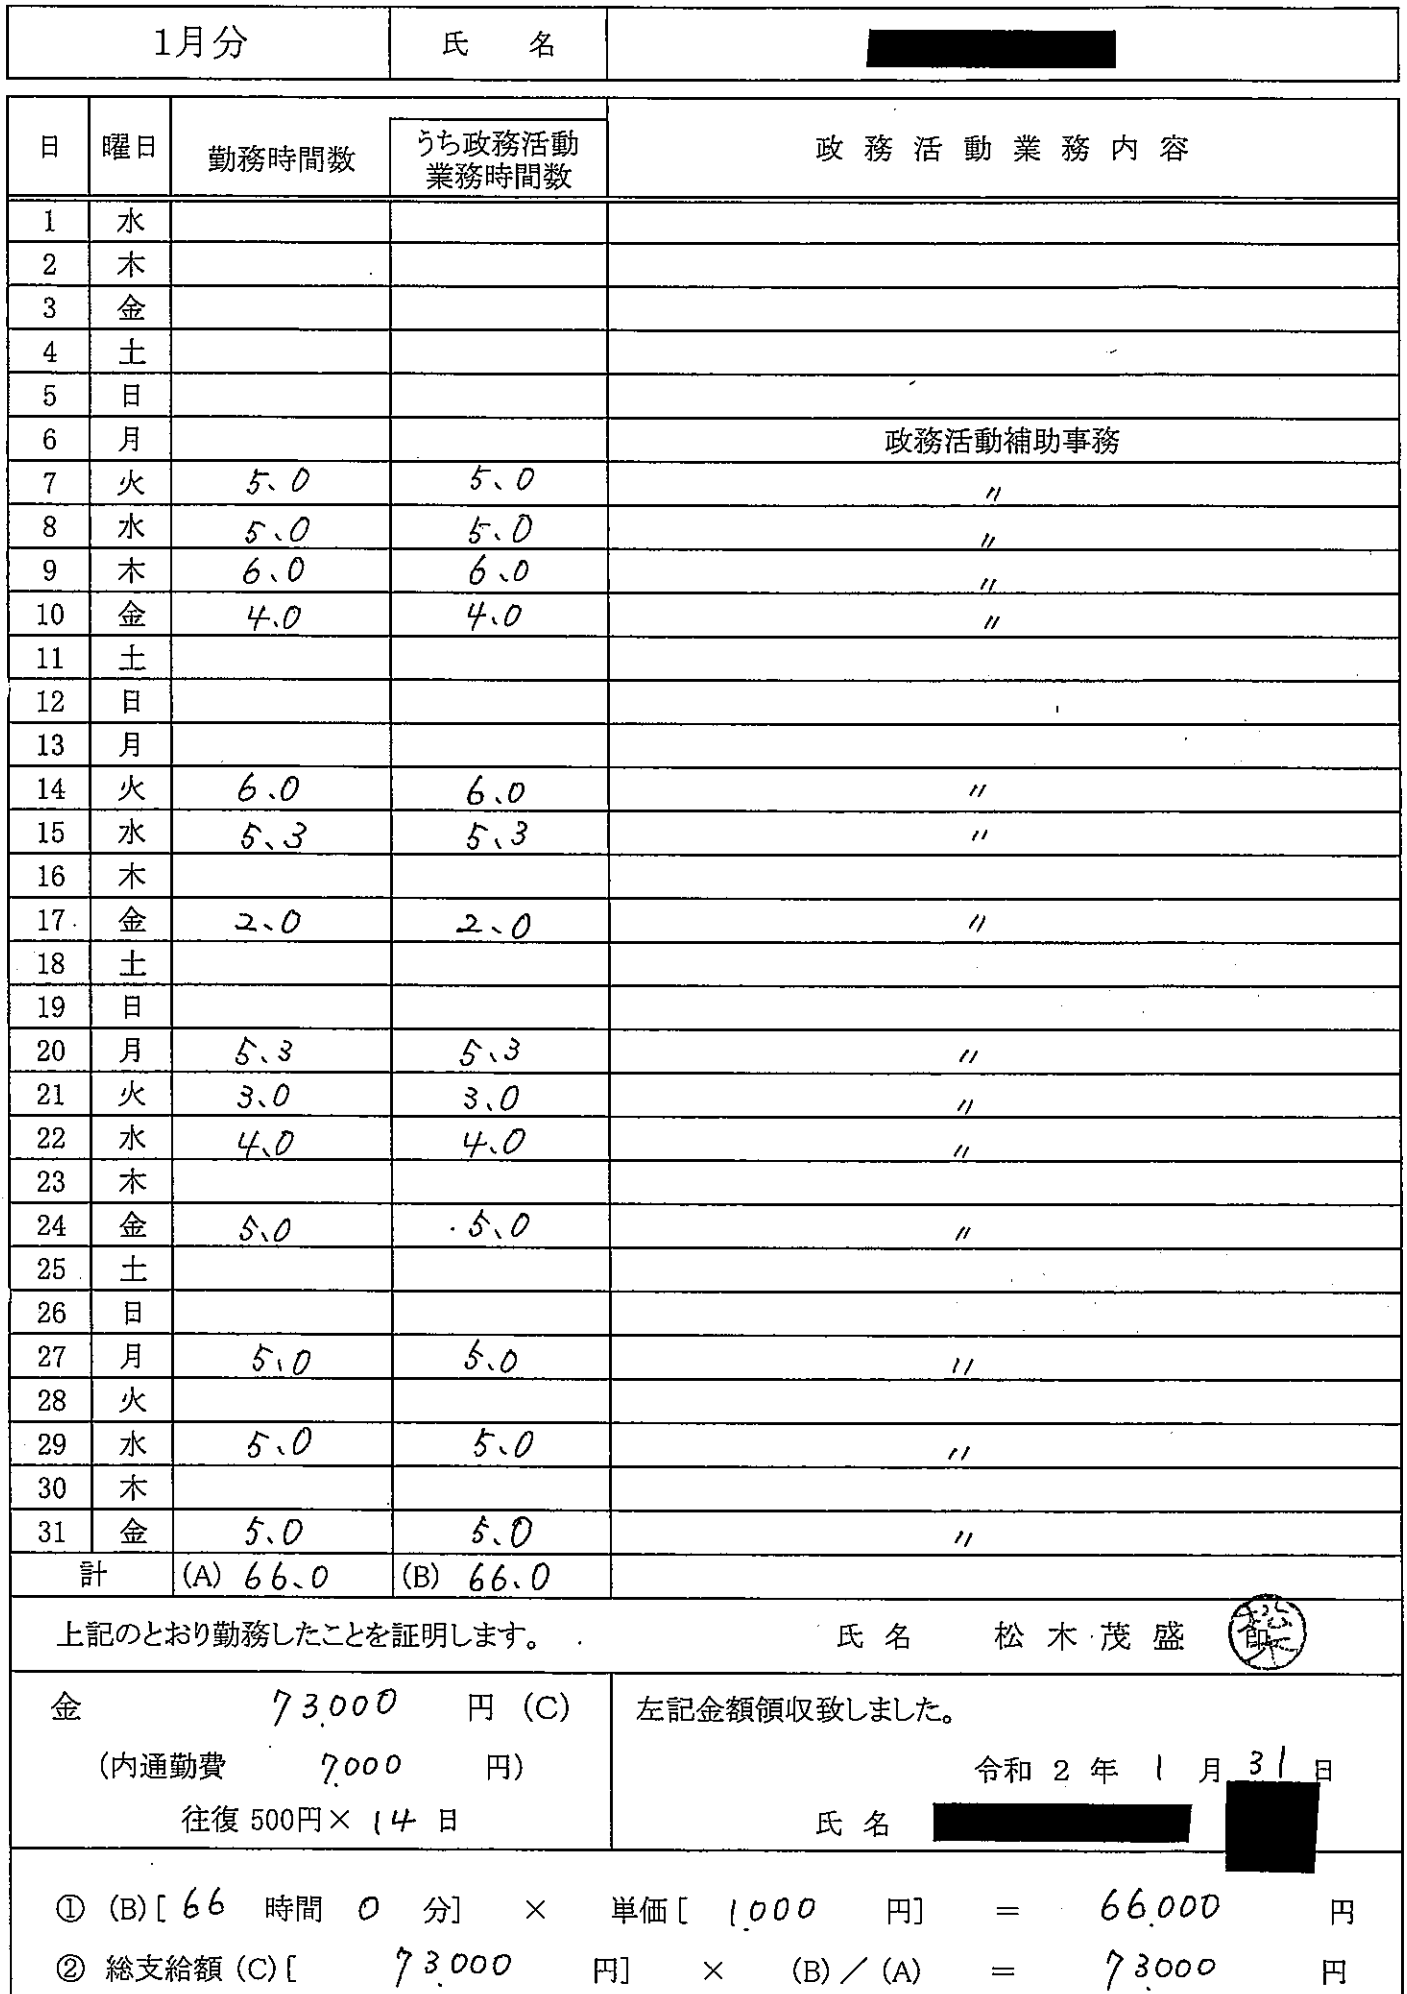 1月分 氏 名
日 曜日 勤務時間数 うち政務活動業務時間数 政務活動業務内容
1 水
2 木
3 金
4 土
5 日
6 月 政務活動補助事務
7 火 5.0 5.0 〃
8 水 5.0 5.0 〃
9 木 6.0 6.0 〃
10 金 4.0 4.0 〃
11 土
12 日
13 月
14 火 6.0 6.0 〃
15 水 5.3 5.3 〃
16 木
17 金 2.0 2.0 〃
18 土
19 日
20 月 5.3 5.3 〃
21 火 3.0 3.0 〃
22 水 4.0 4.0 〃
23 木
24 金 5.0 5.0 〃
25 土
26 日
27 月 5.0 5.0 〃
28 火
29 水 5.0 5.0 〃
30 木
31 金 5.0 5.0 〃
計 (A) 66.0 (B) 66.0
上記のとおり勤務したことを証明します。 氏 名 松木茂盛 松木印
金 73,000 円 (C)
(内通勤費 7,000 円)
往復 500円× 14 日
左記金額領収致しました。
令和 2 年 1 月 31 日
氏 名
① (B)[ 66 時間 0 分] × 単価 [ 1,000 円] = 66,000 円
② 総支給額 (C) [ 73,000 円] × (B)／(A) = 73,000 円